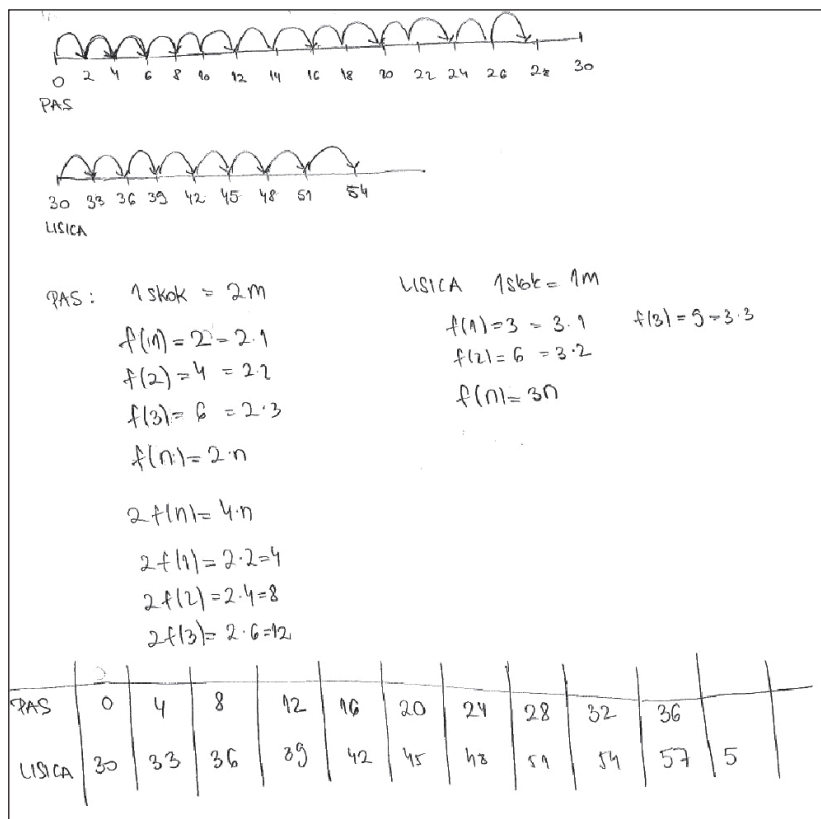 0 2 4 6 8 10 12 14 16 18 20 22 24 26 28 30
PAS
30 33 36 39 42 45 48 51 54
LISICA
PAS: 1 skok = 2m
f(1) = 2 = 2·1
f(2) = 4 = 2·2
f(3) = 6 = 2·3
f(n) = 2·n
2f(n) = 4·n
2f(1) = 2·2=4
2f(2) = 2·4=8
2f(3) = 2·6=12
LISICA 1 skok = 1m
f(1) = 3 = 3·1 f(3) = 9 = 3·3
f(2) = 6 = 3·2
f(n) = 3n
PAS 0 4 8 12 16 20 24 28 32 36
LISICA 30 33 36 39 42 45 48 51 54 57 5